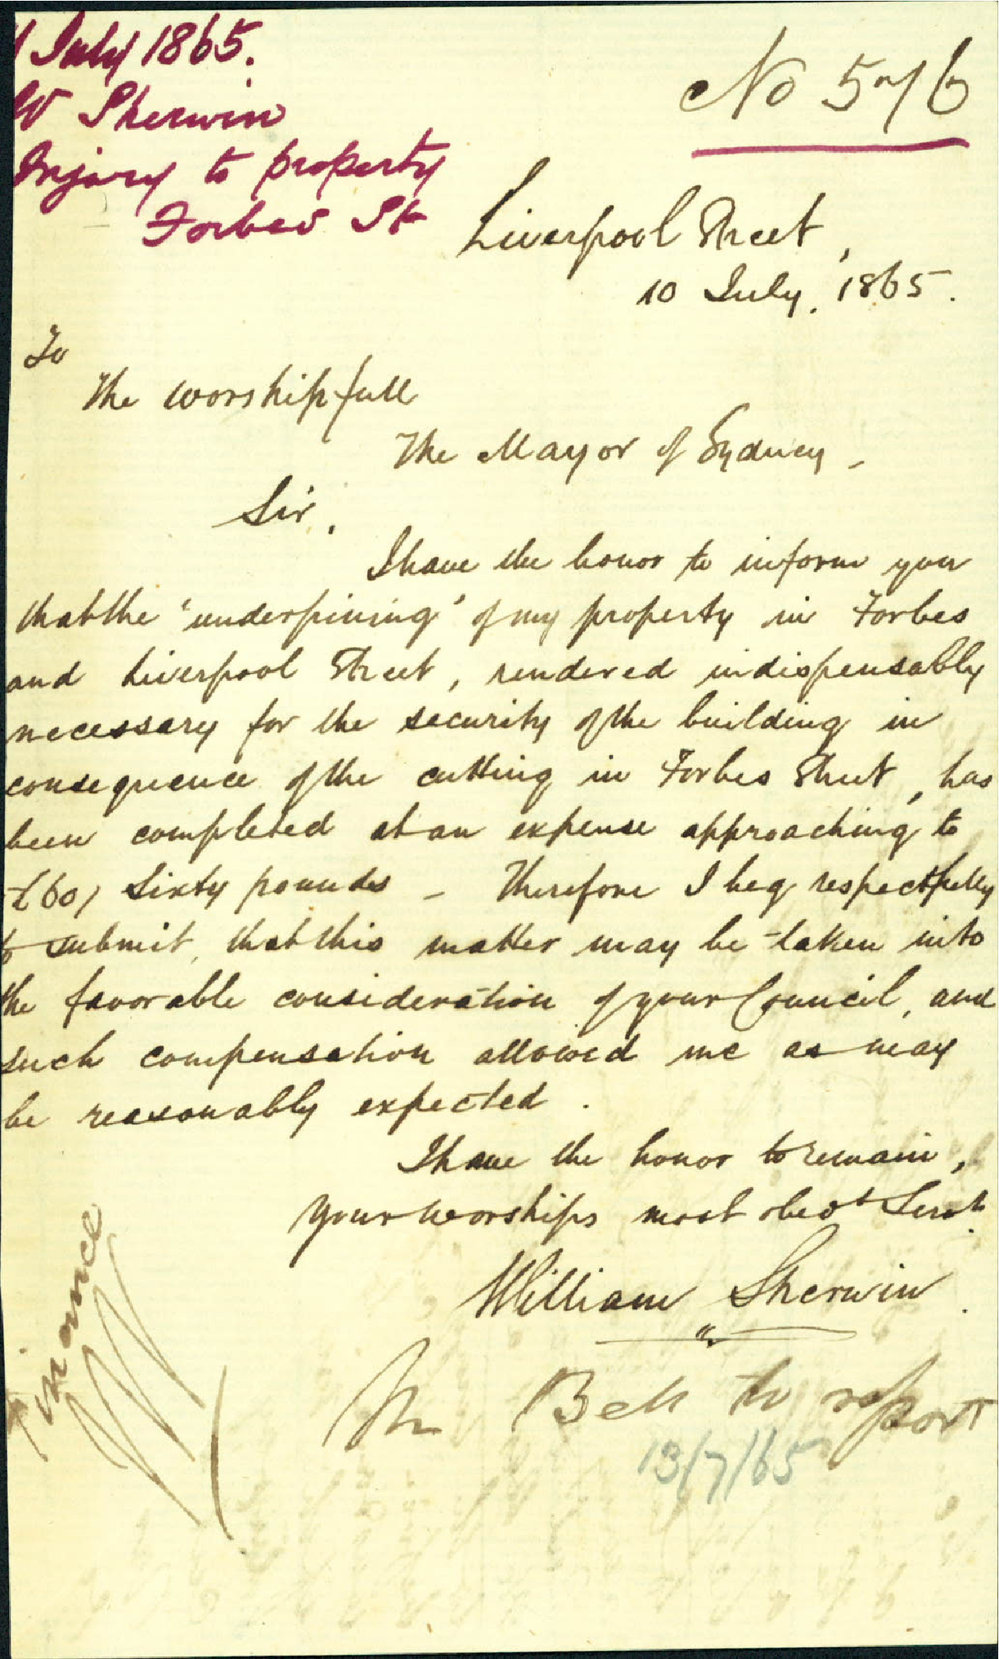 July 1865.
W Sherwin
Injury to property
Forbes St
No 576
Liverpool Street,
10 July, 1865.
To
The Worshipfull
The Mayor of Sydney -
Sir,
I have the honor to inform you
that the 'underpining' of my property in Forbes
and Liverpool Street, rendered indispensably
necessary for the security of the building in
consequence of the cutting in Forbes Street, has
been completed at an expense approaching to
£60/ Sixty pounds - Therefore I beg respectfully
to submit, that this matter may be taken into
the favorable consideration of your Council, and
such compensation allowed me as may
be reasonably expected.
I have the honor to remain,
Your Worships most obedt Servt
William Sherwin.
Mr Bell to report
13/7/65